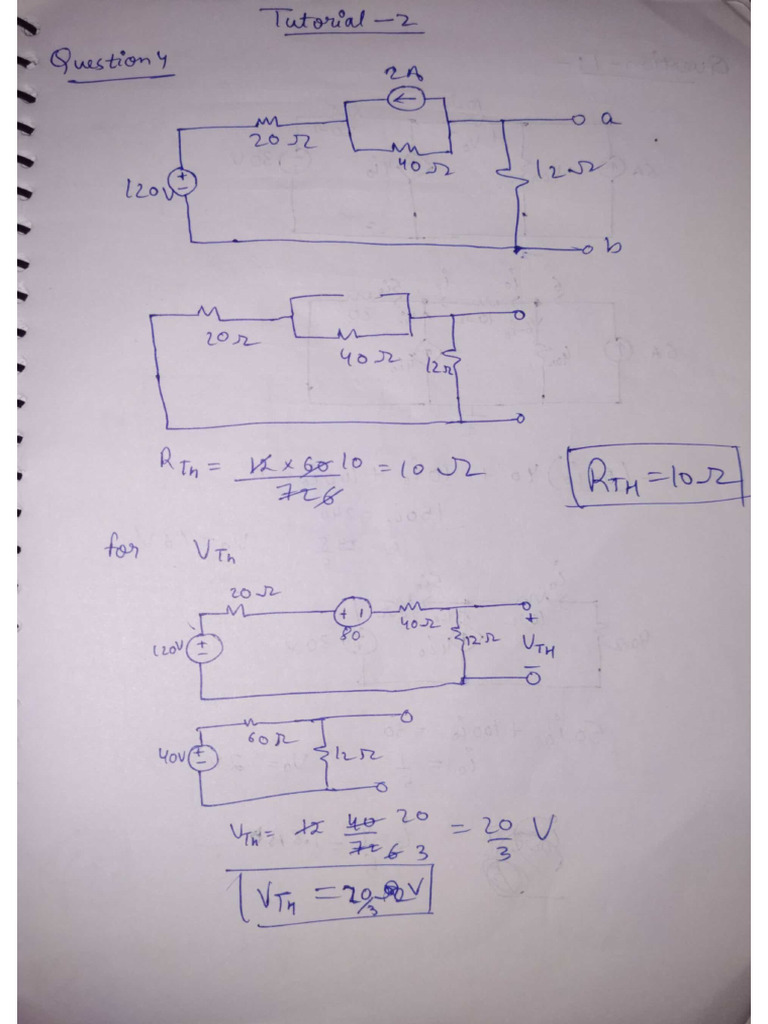 Tutorial - 2
Question 4
2A
20 Ω
40 Ω
12 Ω
a
120V
+
-
b
20 Ω
40 Ω
12 Ω
R_Th = 12 × 60 10 / 72 6 = 10 Ω
R_TH = 10 Ω
for V_Th
20 Ω
+ -
80
40 Ω
12 Ω
+
V_TH
-
120V
+
-
60 Ω
40V
+
-
12 Ω
V_Th = 12 40 20 / 72 6 3 = 20/3 V
V_Th = 20/3 V